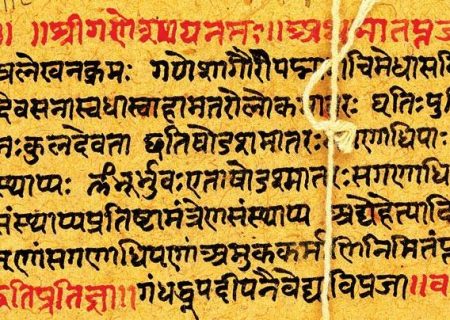 ॥ ॥श्रीगणेशायनमः॥अथमातृपूज
लेखनक्रमः गणेशगौरीपद्मा चिमेधासवि
देवसेनास्वधास्वाहामातरोलोक तरः धृतिःपु
नःकुलदेवता इतिषोडशमातरः गणाधिपाः
स्थाप्यः ॐभूर्भुवःएताषोडशमातरःसगणाधि
संस्थाप्यप्रतिष्टामंत्रेणसंस्थाप्य अद्येहेत्यादि
सगणाधिपाणांअमुककर्म निमित्तं
इतिप्रतिज्ञा॥गंधधूपदीपनैवैद्य विपूजा॥